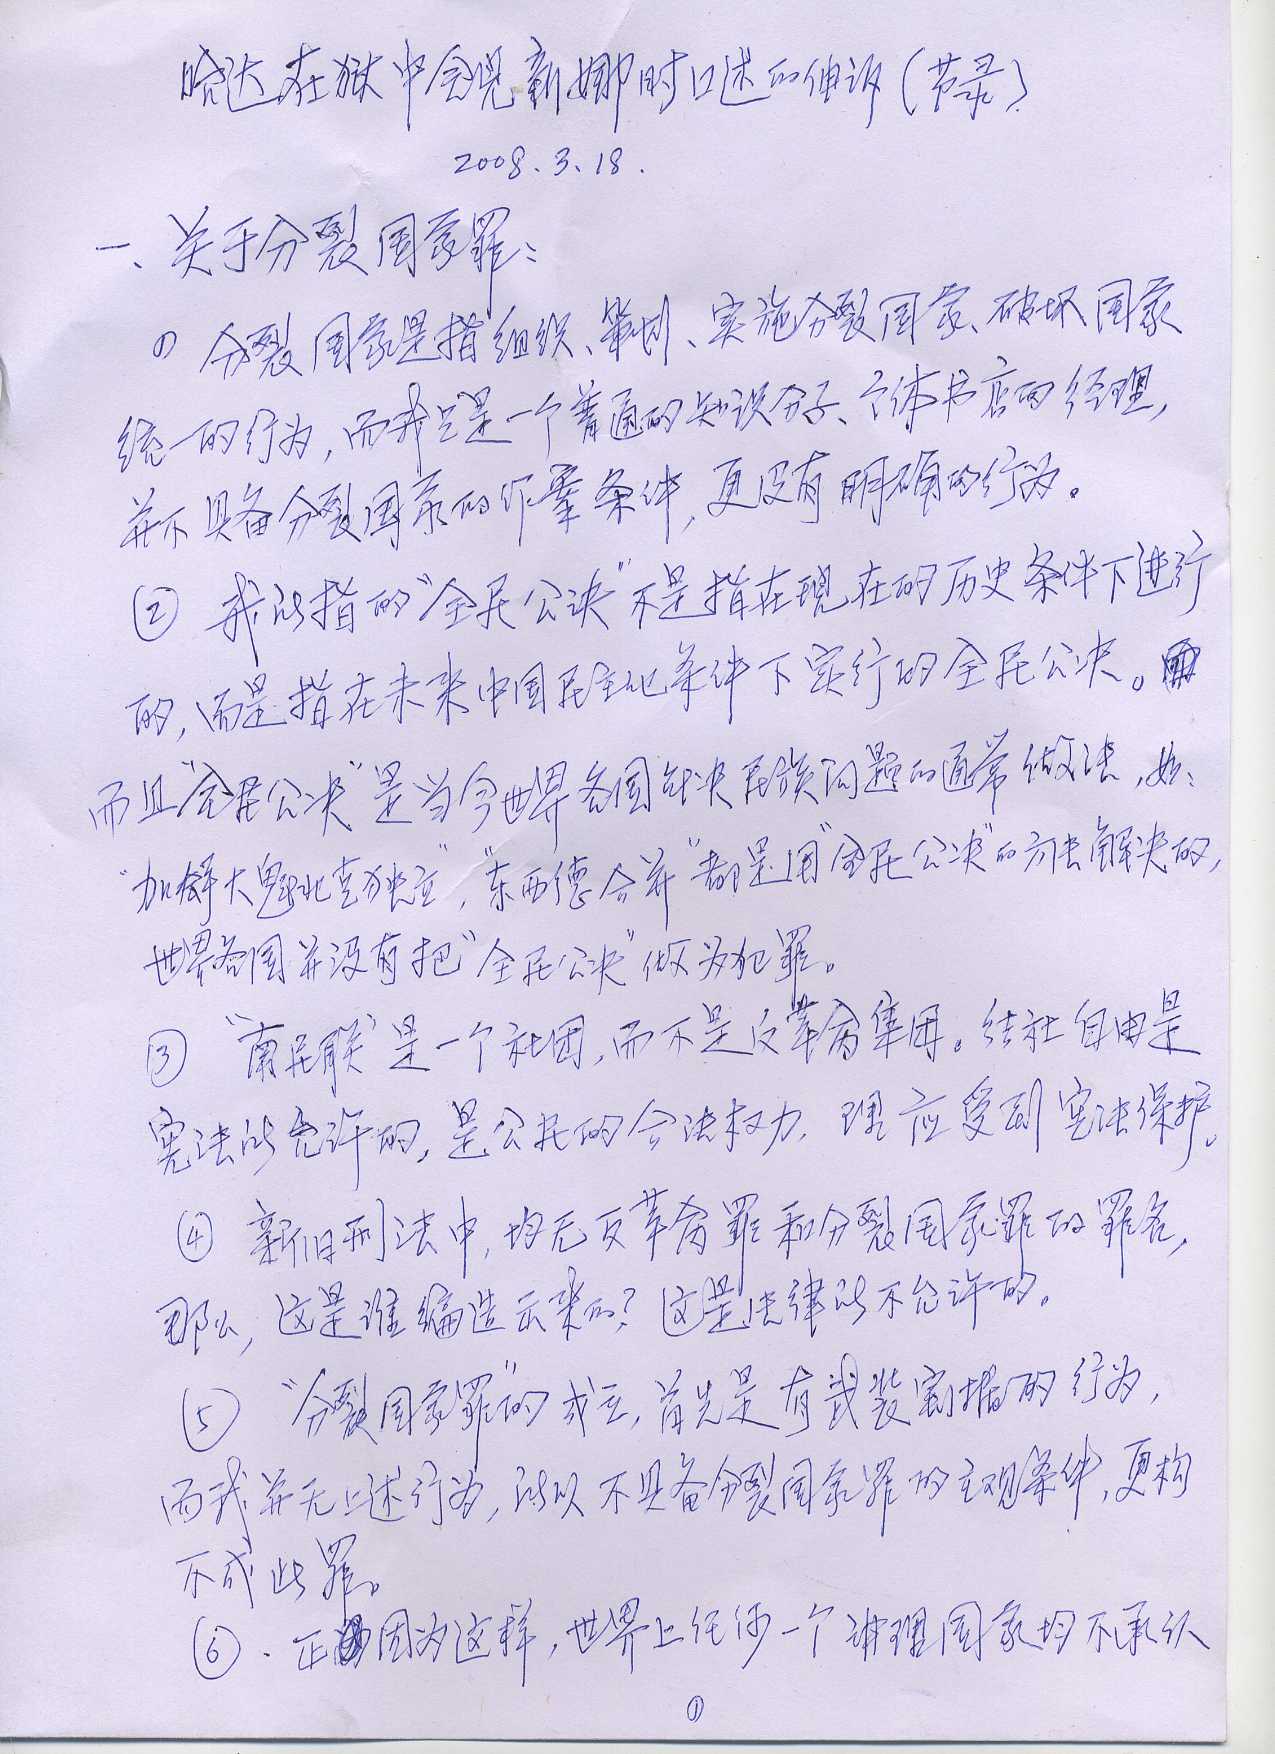 哈达在狱中会见新娜时口述的申诉(节录)
2008.3.18.
一、关于分裂国家罪:
① 分裂国家是指组织、策划、实施分裂国家、破坏国家
统一的行为,而我只是一个普通的知识分子、个体书店的经理,
并不具备分裂国家的作案条件,更没有明确的行为。
② 我所指的“全民公决”不是指在现在的历史条件下进行
的,而是指在未来中国民主化条件下实行的全民公决。
而且“全民公决”是当今世界各国解决民族问题的通常做法,如:
“加拿大魁北克独立”,“东西德合并”都是用“全民公决”的方法解决的,
世界各国并没有把“全民公决”做为犯罪。
③ “南民联”是一个社团,而不是反革命集团。结社自由是
宪法所允许的,是公民的合法权力,理应受到宪法保护。
④ 新旧刑法中,均无反革命罪和分裂国家罪的罪名,
那么,这是谁编造出来的?这是法律所不允许的。
⑤ “分裂国家罪”的成立,首先是有武装割据的行为,
而我并无上述行为,所以不具备分裂国家罪的主观条件,更构
不成此罪。
⑥.正因为这样,世界上任何一个讲理国家均不承认
①